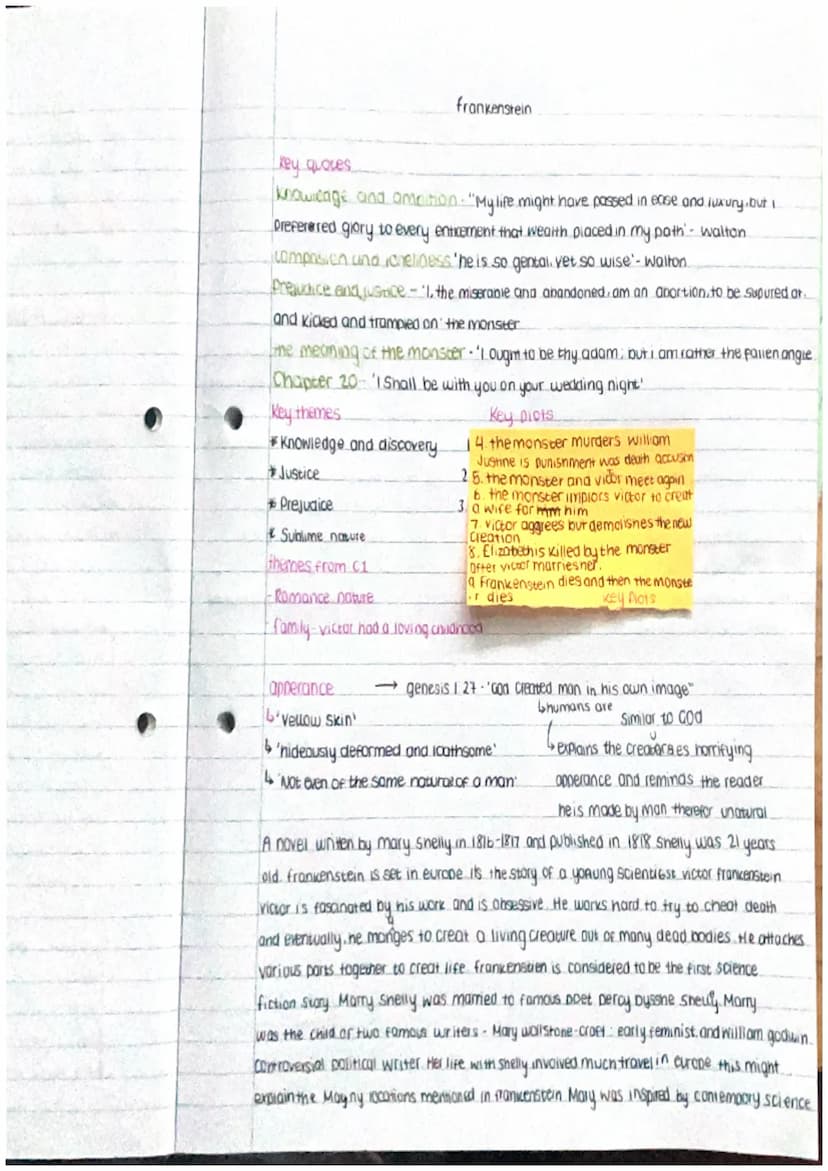 frankenstein
key quotes
knowledge and ambition - "My life might have passed in ease and luxury, but i
preferered glory to every enticement that wealth placed in my path' - walton
compasion and loneliness 'he is so gental, yet so wise' - walton
Prejudice and justice - 'I, the miserable and abandoned, am an abortion, to be supured at,
and kicked and trampled on' the monster
the meaning of the monster - 'I ougnt to be thy adam; but i am rather the fallen angle
Chapter 20 - 'I shall be with you on your wedding night'
key themes
Key plots
* Knowledge and discovery
* Justice
* Prejudice
* Sublime nature
themes from C1
- Romance nature
- family - victor had a loving childhood
1
2
3.
4. the monster murders william
Justine is punishment was death accusm
5. the monster and victor meet again
6. the monster implors victor to creat
a wife for him
7. victor aggrees but demolishes the new
creation
8. Elizabeth is killed by the monster
after victor marries her.
9 Frankenstein dies and then the monste
r dies
key plots
apperance → genesis 1:27 - 'God created man in his own image"
↳ humans are
similar to GOD
↳ 'Yellow skin'
↳ 'hideously deformed and loathsome'
↳ 'Not even of the same natural of a man'
↳ explains the horrifying
apperance and reminds the reader
he is made by man therefor unatural
A novel written by mary Shelly in 1816-1817 and published in 1818. Shelly was 21 years
old. frankenstein is set in europe its the story of a young scientist victor frankenstein
victor is fascinated by his work and is obsessive. He works hard to try to cheat death
and eventually, he manges to creat a living creature out of many dead bodies. He attaches
various parts together to creat life. frankenstien is considered to be the first science
fiction story. Marry Shelly was married to famous poet percy bysshe Shelly. Marry
was the child of two famous writers - Mary wollstone-croft: early feminist, and william godwin
controversial political writer. Her life with shelly involved much travel in europe this might
explain the many locations mentioned in frankenstein. Mary was inspired by contempory science